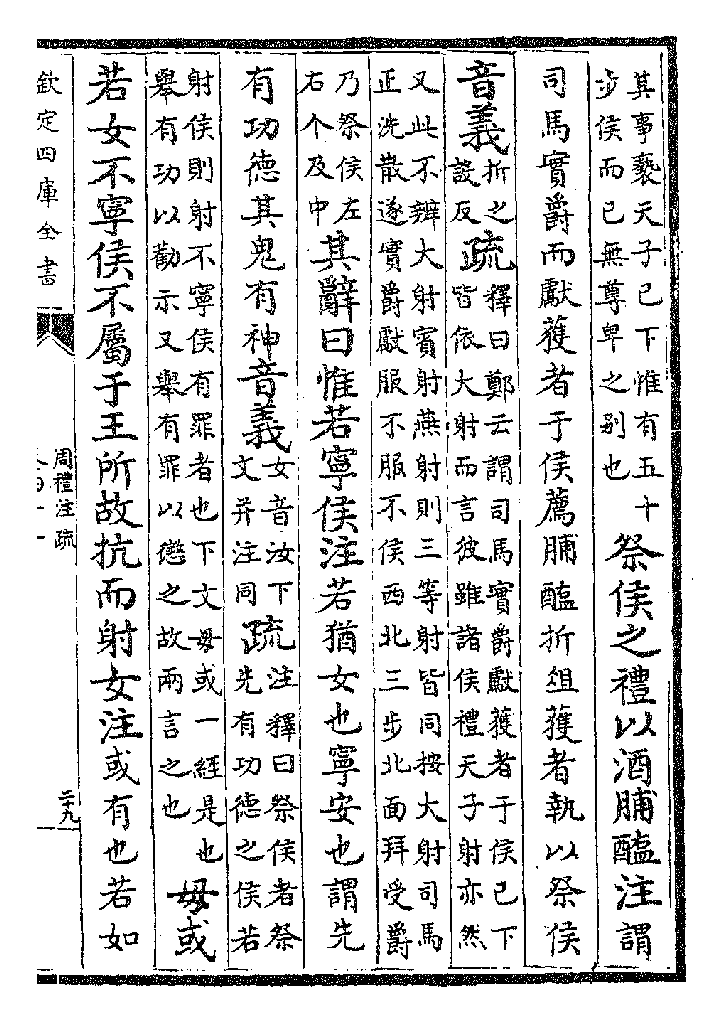 其事褻天子已下惟有五十
步侯而已無尊卑之别也
祭侯之禮以酒脯醢注謂
司馬實爵而獻獲者于侯薦脯醢折俎獲者執以祭侯
音義
折之
設反
疏
釋曰鄭云謂司馬實爵獻獲者于侯已下
皆依大射而言彼雖諸侯禮天子射亦然
又此不辨大射賓射燕射則三等射皆同按大射司馬
正洗散遂實爵獻服不服不侯西北三步北面拜受爵
乃祭侯左
右个及中
其辭曰惟若寧侯注若猶女也寧安也謂先
有功德其鬼有神音義
女音汝下
文并注同
疏
注釋曰祭侯者祭
先有功德之侯若
射侯則射不寧侯有罪者也下文毋或一經是也
舉有功以勸示又舉有罪以懲之故兩言之也
毋或
若女不寧侯不屬于王所故抗而射女注或有也若如
欽定四庫全書
周禮注疏
二十九